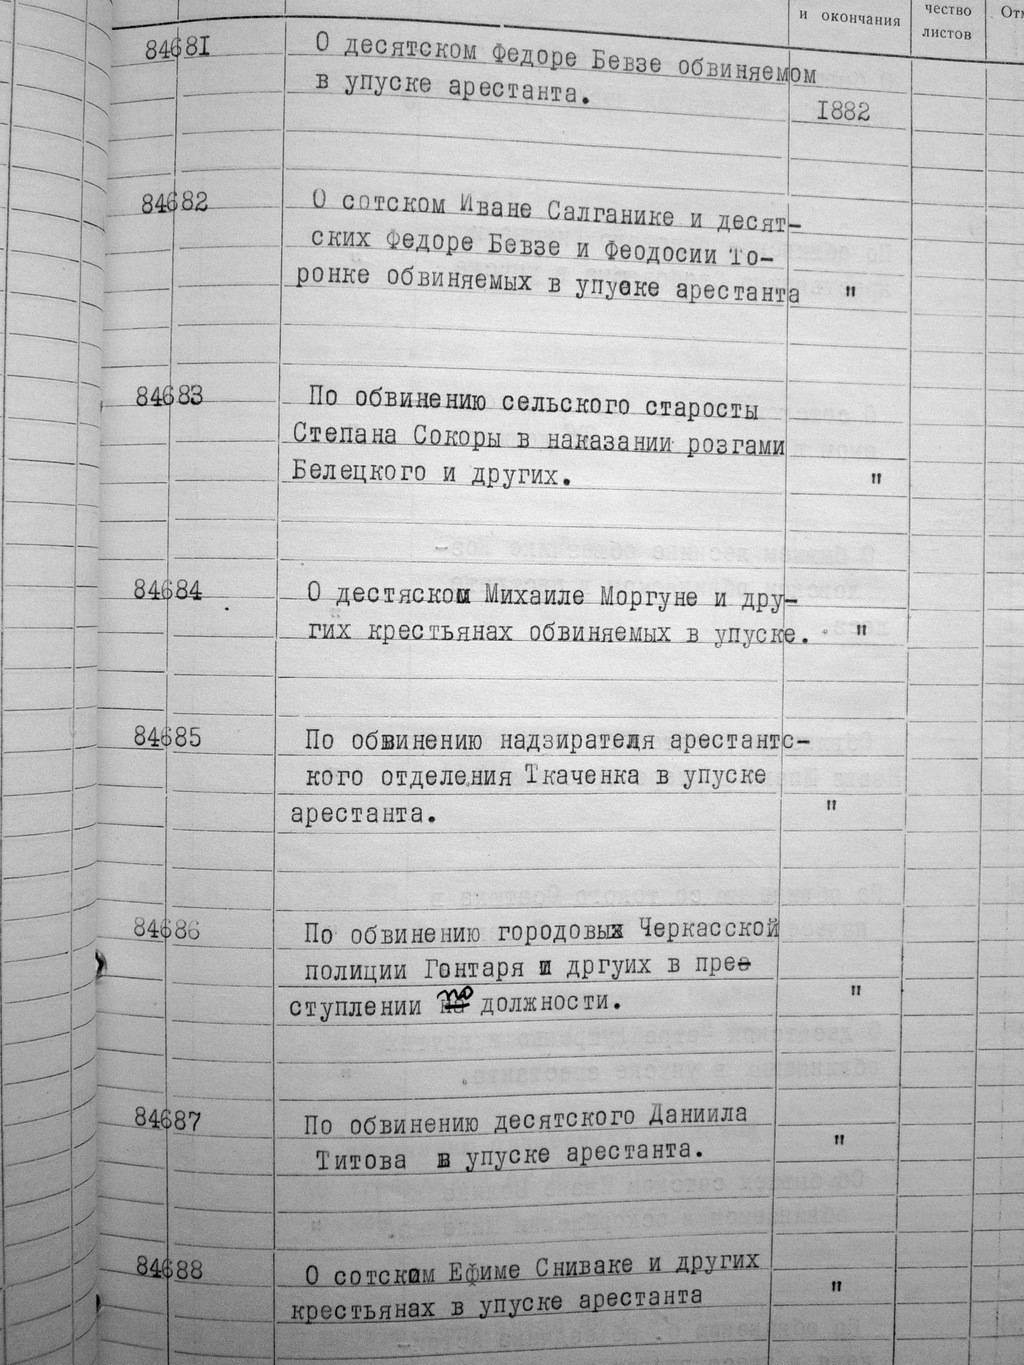 и окончания
чество
листов
84681
О десятском Федоре Бевзе обвиняемом
в упуске арестанта.
1882
84682
О сотском Иване Салганике и десят-
ских Федоре Бевзе и Феодосии То-
ронке обвиняемых в упуске арестанта "
84683
По обвинению сельского старосты
Степана Сокоры в наказании розгами
Белецкого и других. "
84684
О дестяском Михаиле Моргуне и дру-
гих крестьянах обвиняемых в упуске. "
84685
По обвинению надзирателя арестантс-
кого отделения Ткаченка в упуске
арестанта. "
84686
По обвинению городовых Черкасской
полиции Гонтаря и дргуих в пре-
ступлении по должности. "
84687
По обвинению десятского Даниила
Титова в упуске арестанта. "
84688
О сотском Ефиме Сниваке и других
крестьянах в упуске арестанта "